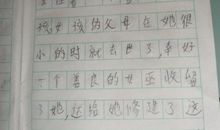 孩,女孩的父母在她很
小的时就去世了,幸好
一个善良的女巫收留
了她,还给她修建了这